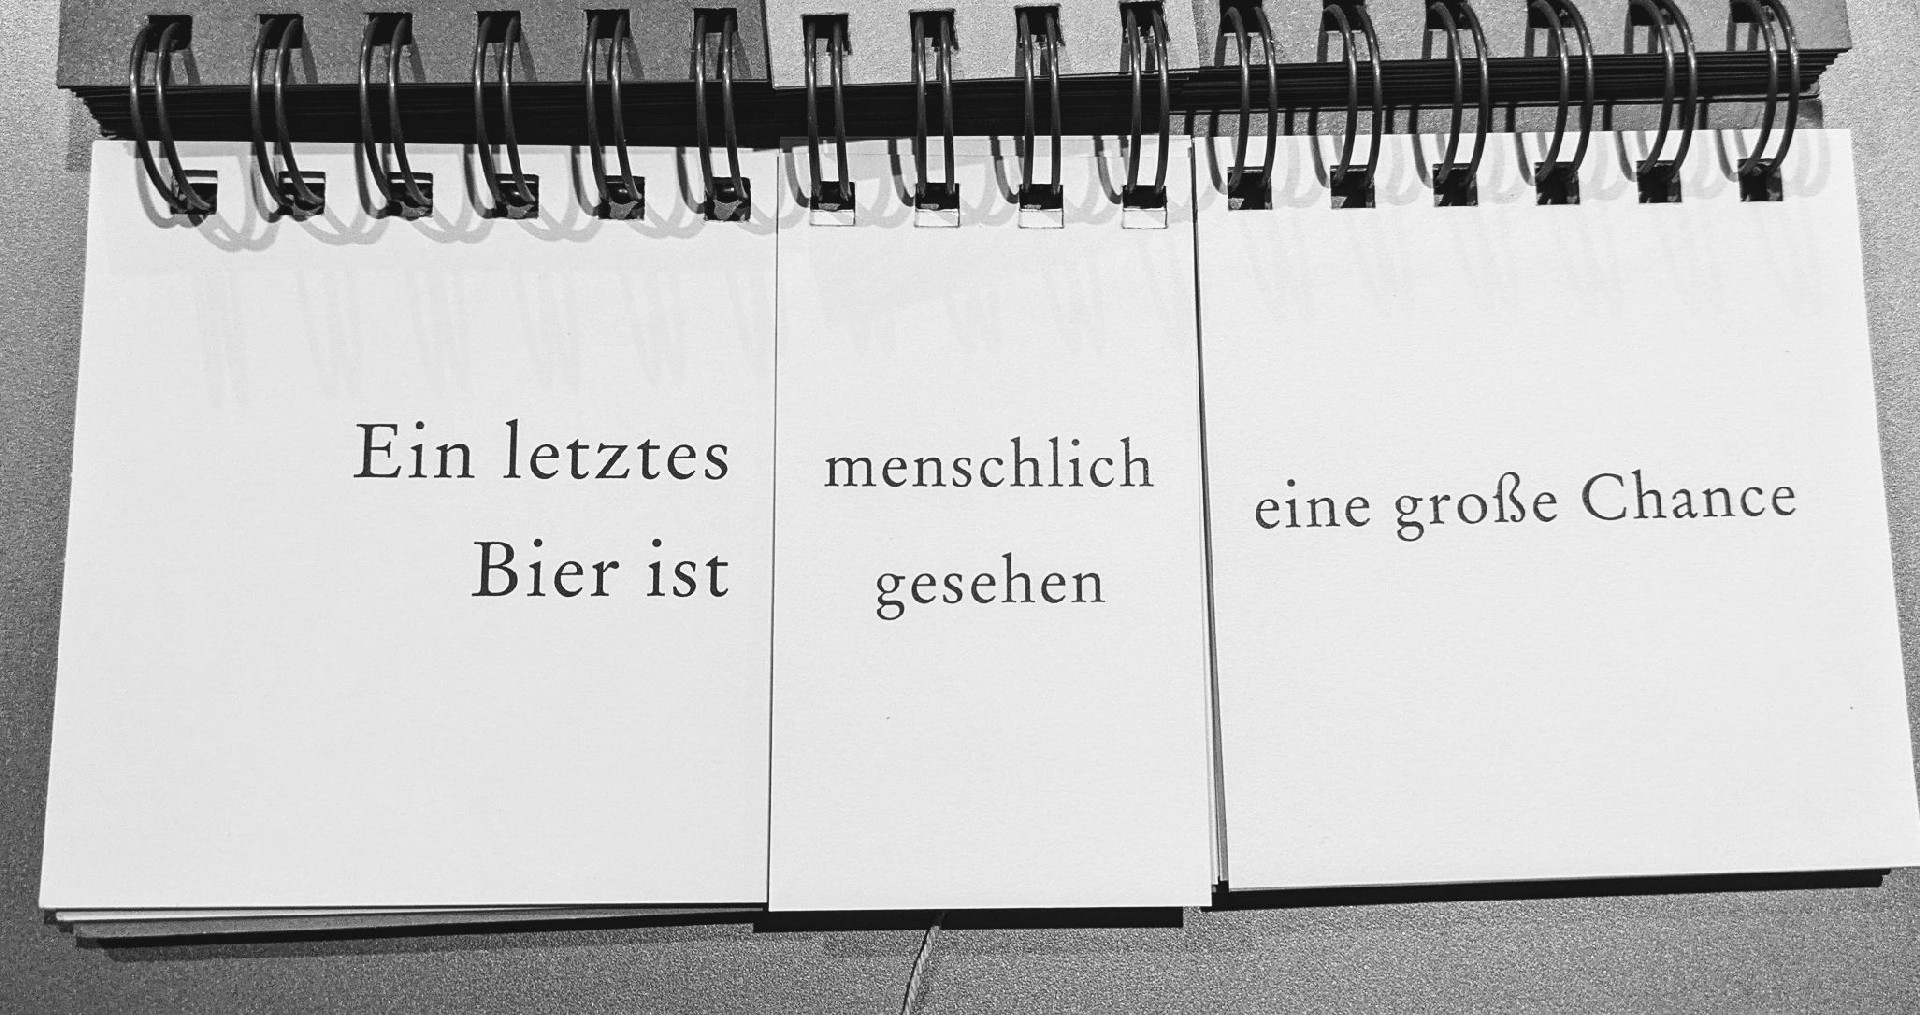 Ein letztes
Bier ist
menschlich
gesehen
eine große Chance